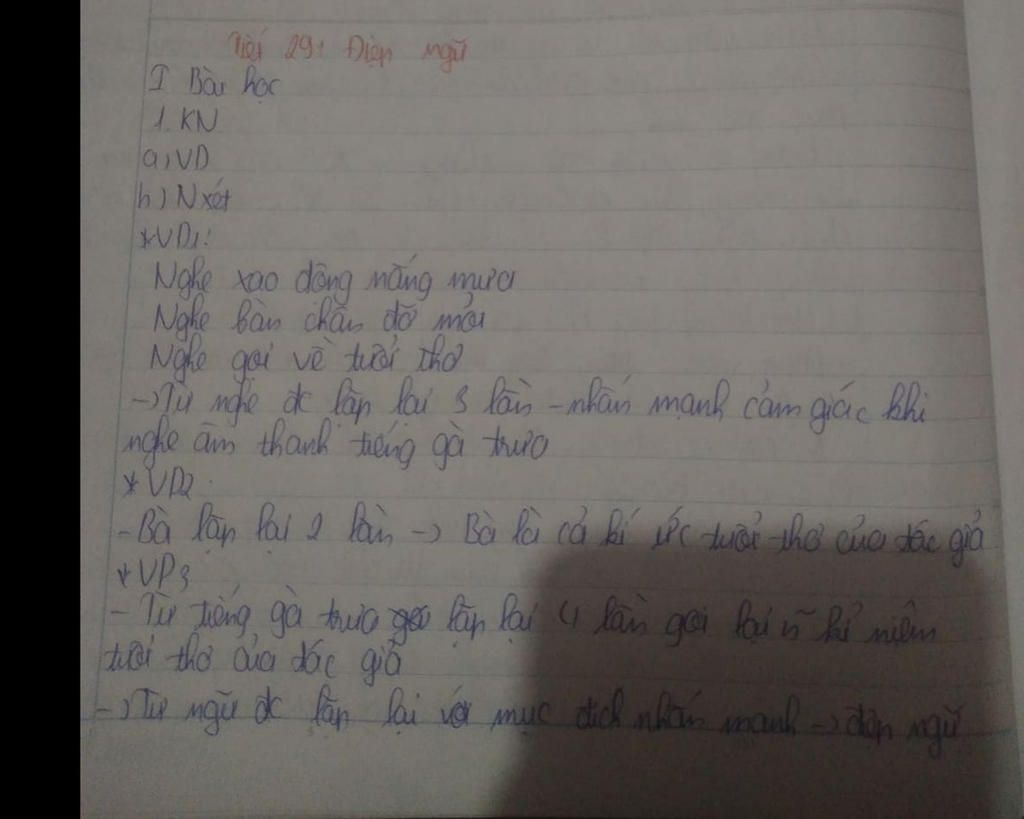 Tiết 29: Điệp ngữ
I Bài học
1. KN
a, VD
b) Nxét
*VD1:
Nghe xao động nắng mưa
Nghe bàn chân đỡ mỏi
Nghe gọi về tuổi thơ
-> Từ nghe đc lặp lại 3 lần - nhấn mạnh cảm giác khi
nghe âm thanh tiếng gà trưa
* VD2
- Bà lặp lại 2 lần -> Bà là cả kí ức tuổi thơ của tác giả
* VD3
- Từ tiếng gà trưa lặp lại 4 lần gọi lại n~ kỉ niệm
tuổi thơ của tác giả
-> Từ ngữ đc lặp lại với mục đích nhấn mạnh -> điệp ngữ